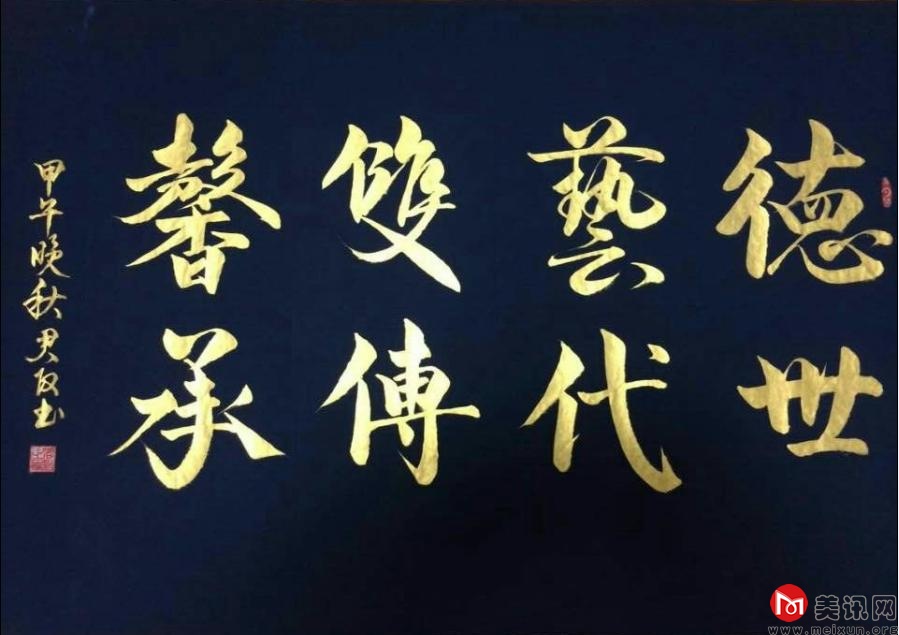 德藝雙馨
世代傳承
甲午晚秋君书
美讯网
www.meixun.org